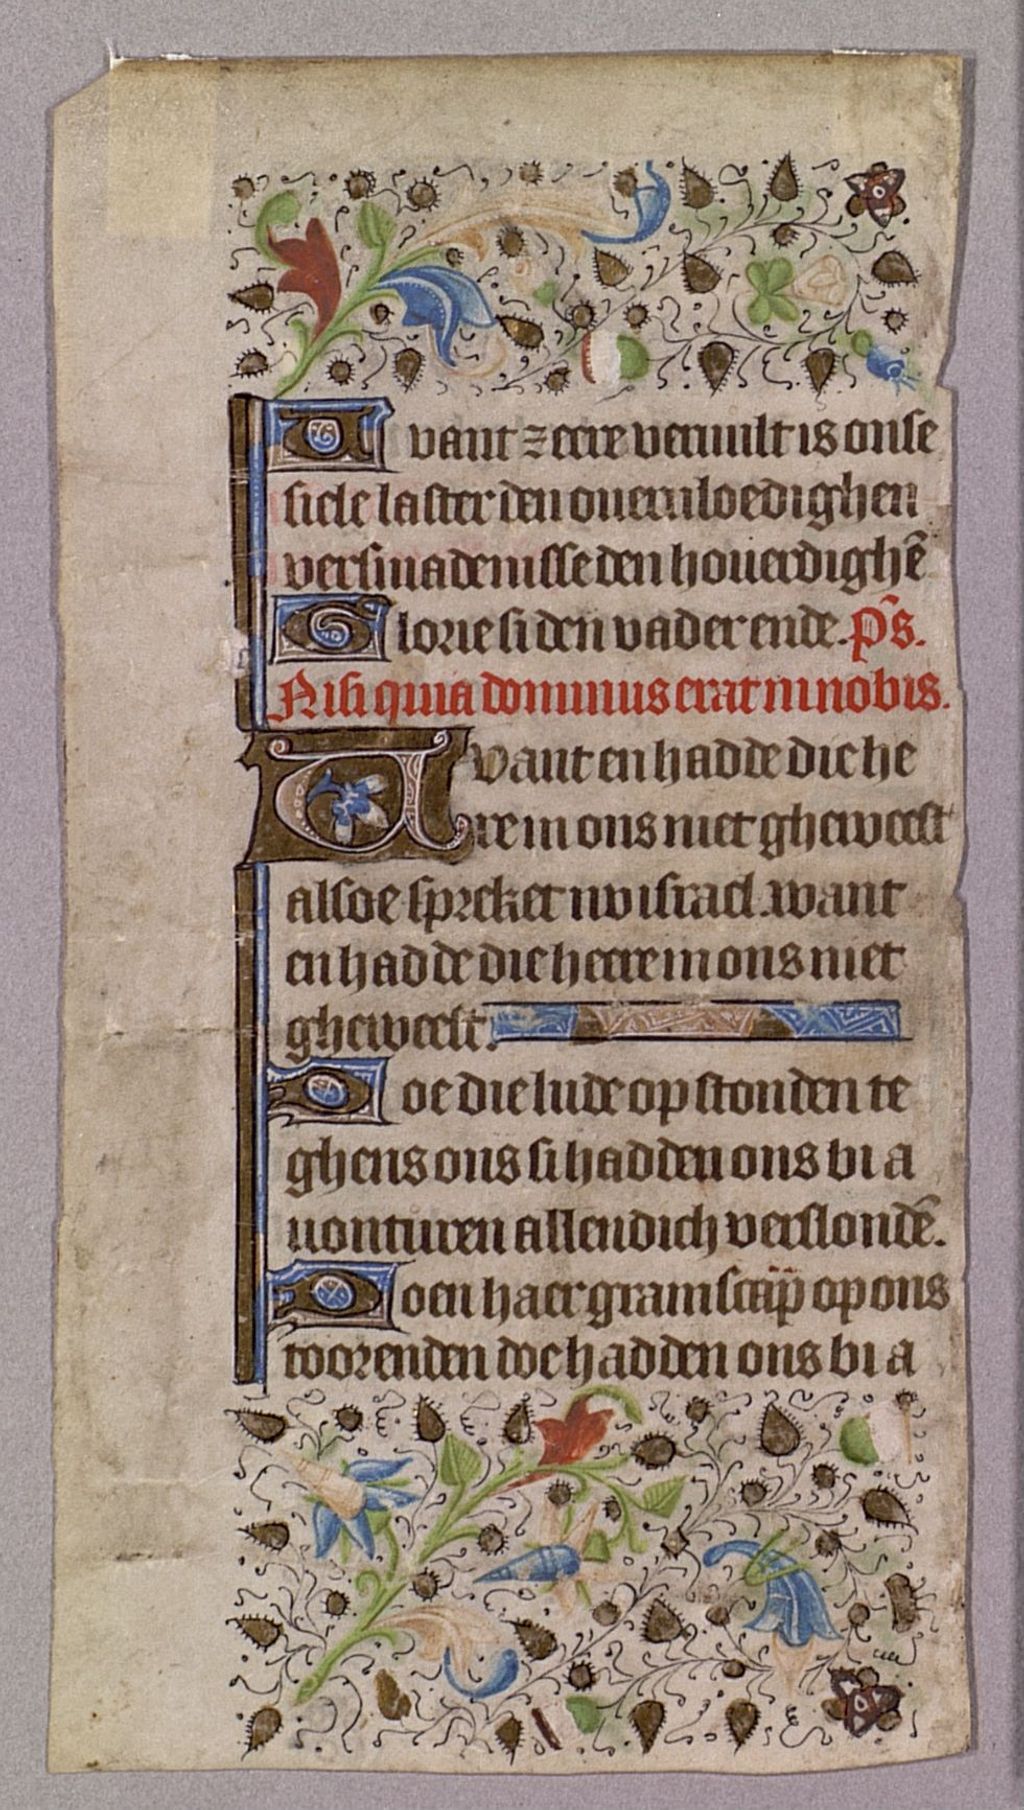 Want zeere veruult is onse
siele laster den ouervloedighen
versmadenisse den houerdighē
Glorie si den vader ende. p̄s.
Nisi quia dominus erat in nobis.
Want en hadde die he
re in ons niet gheweest
alsoe spreket nv israel. want
en hadde die heere in ons niet
gheweest.
Doe die lude op stonden te
ghens ons si hadden ons bi a
uonturen alleuendich verslondē.
Doen haer gramscap op ons
toorenden doe hadden ons bi a